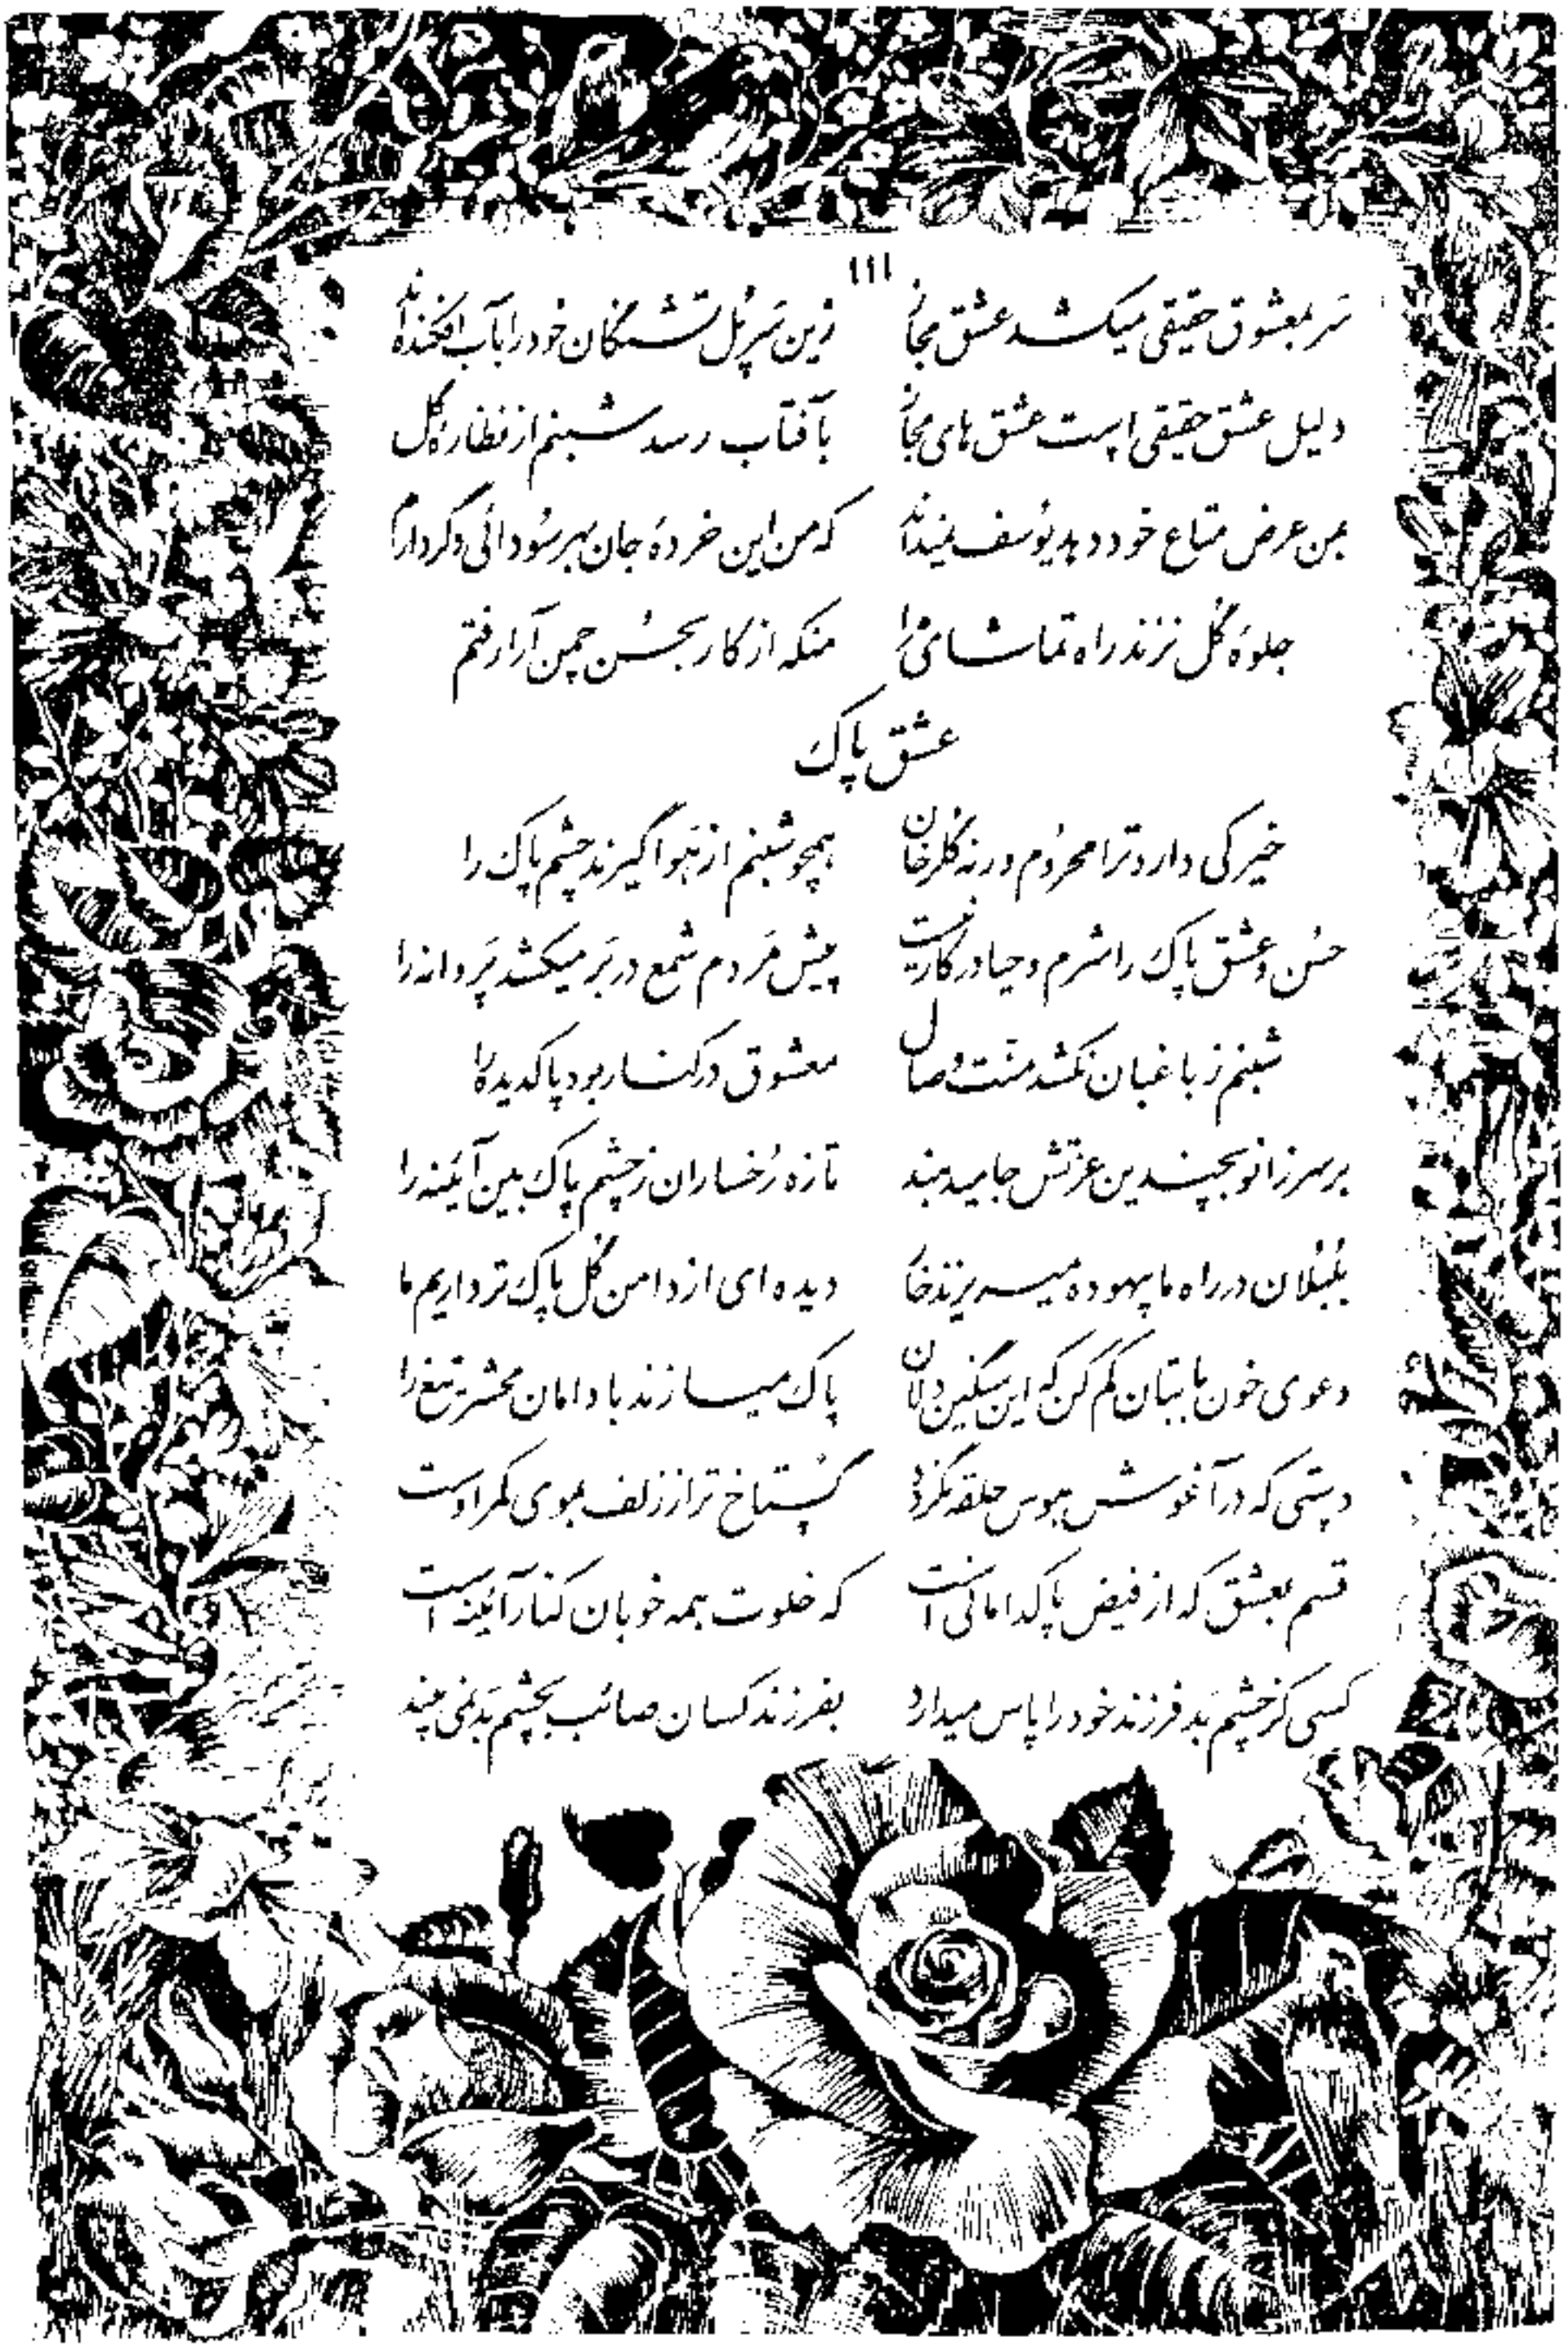 ۱۱۱
سَر بمعشوق حقیقی میکشد عشق مجاز زین سَرِ پُل تشنگان خود را بآب افکنده‌اند
دلیل عشق حقیقی است عشق های مجاز بآفتاب رسد شبنم از نظارهٔ گل
بمن عرض متاع خود دهد یُوسف نمیداند که من این خردهٔ جان بهر سَودائی دگر دارم
جلوهٔ گُل نزند راه تماشای مرا منکه از کار بحُسن چمن آرا رفتم
عشق پاک
خیرگی دارد ترا محرُوم ورنه گلرخان همچو شبنم از هَوا گیرند چشم پاک را
حسُن و عشق پاک را شرم و حیا در کار نیست پیش مَردم شمع در بَر میکشد پَروانه را
شبنم ز باغبان نکشد منّت وصال معشوق در کنار بود پاکدیده را
بر سر زانو بچندین عزتش جا میدهند تازه رُخساران ز چشم پاک بین آیَنه را
بُلبُلان در راه ما بیهوده میریزند خار دیده ای از دامن گُل پاک تر داریم ما
دعوی خون با بتان کم کن که این سنگین دلان پاک میسازند با دامان محشر تیغ را
دستی که در آغوش هوس حلقه نگردد گُستاخ تر از زلف بموی کمر اوست
قسم بعشق که از فیض پاکدامانی است که خلوت همه خوبان کنار آئینه است
کسی کز چشم بَد فرزند خود را پاس میدارد بفرزند کسان صائب بچشم بَد نمی بیند